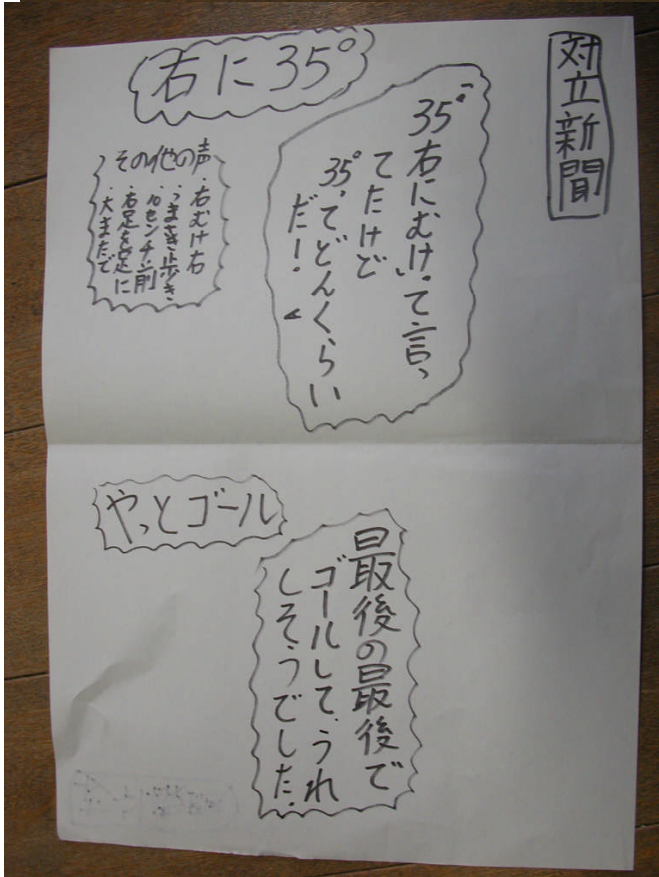 対立新聞
右に35°
35°右にむけ、て言っ
てたけど
35°、てどんくらい
だー!
その他の声
・右むけ右
・つまさき歩き
・10センチ前
・右足を左足に
・大またで
やっとゴール
最後の最後で
ゴールして、うれ
しそうでした。